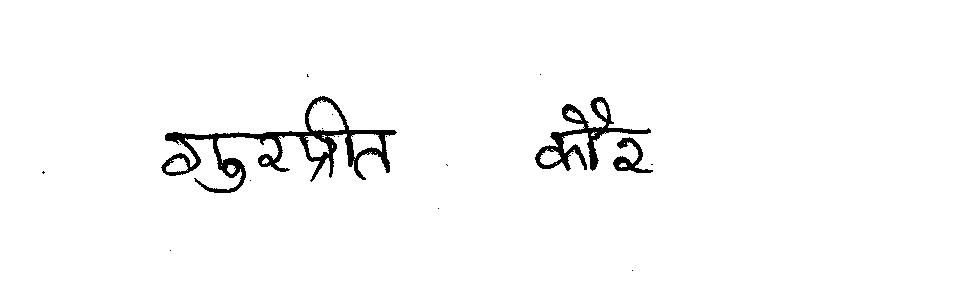 गुरप्रीत कौर